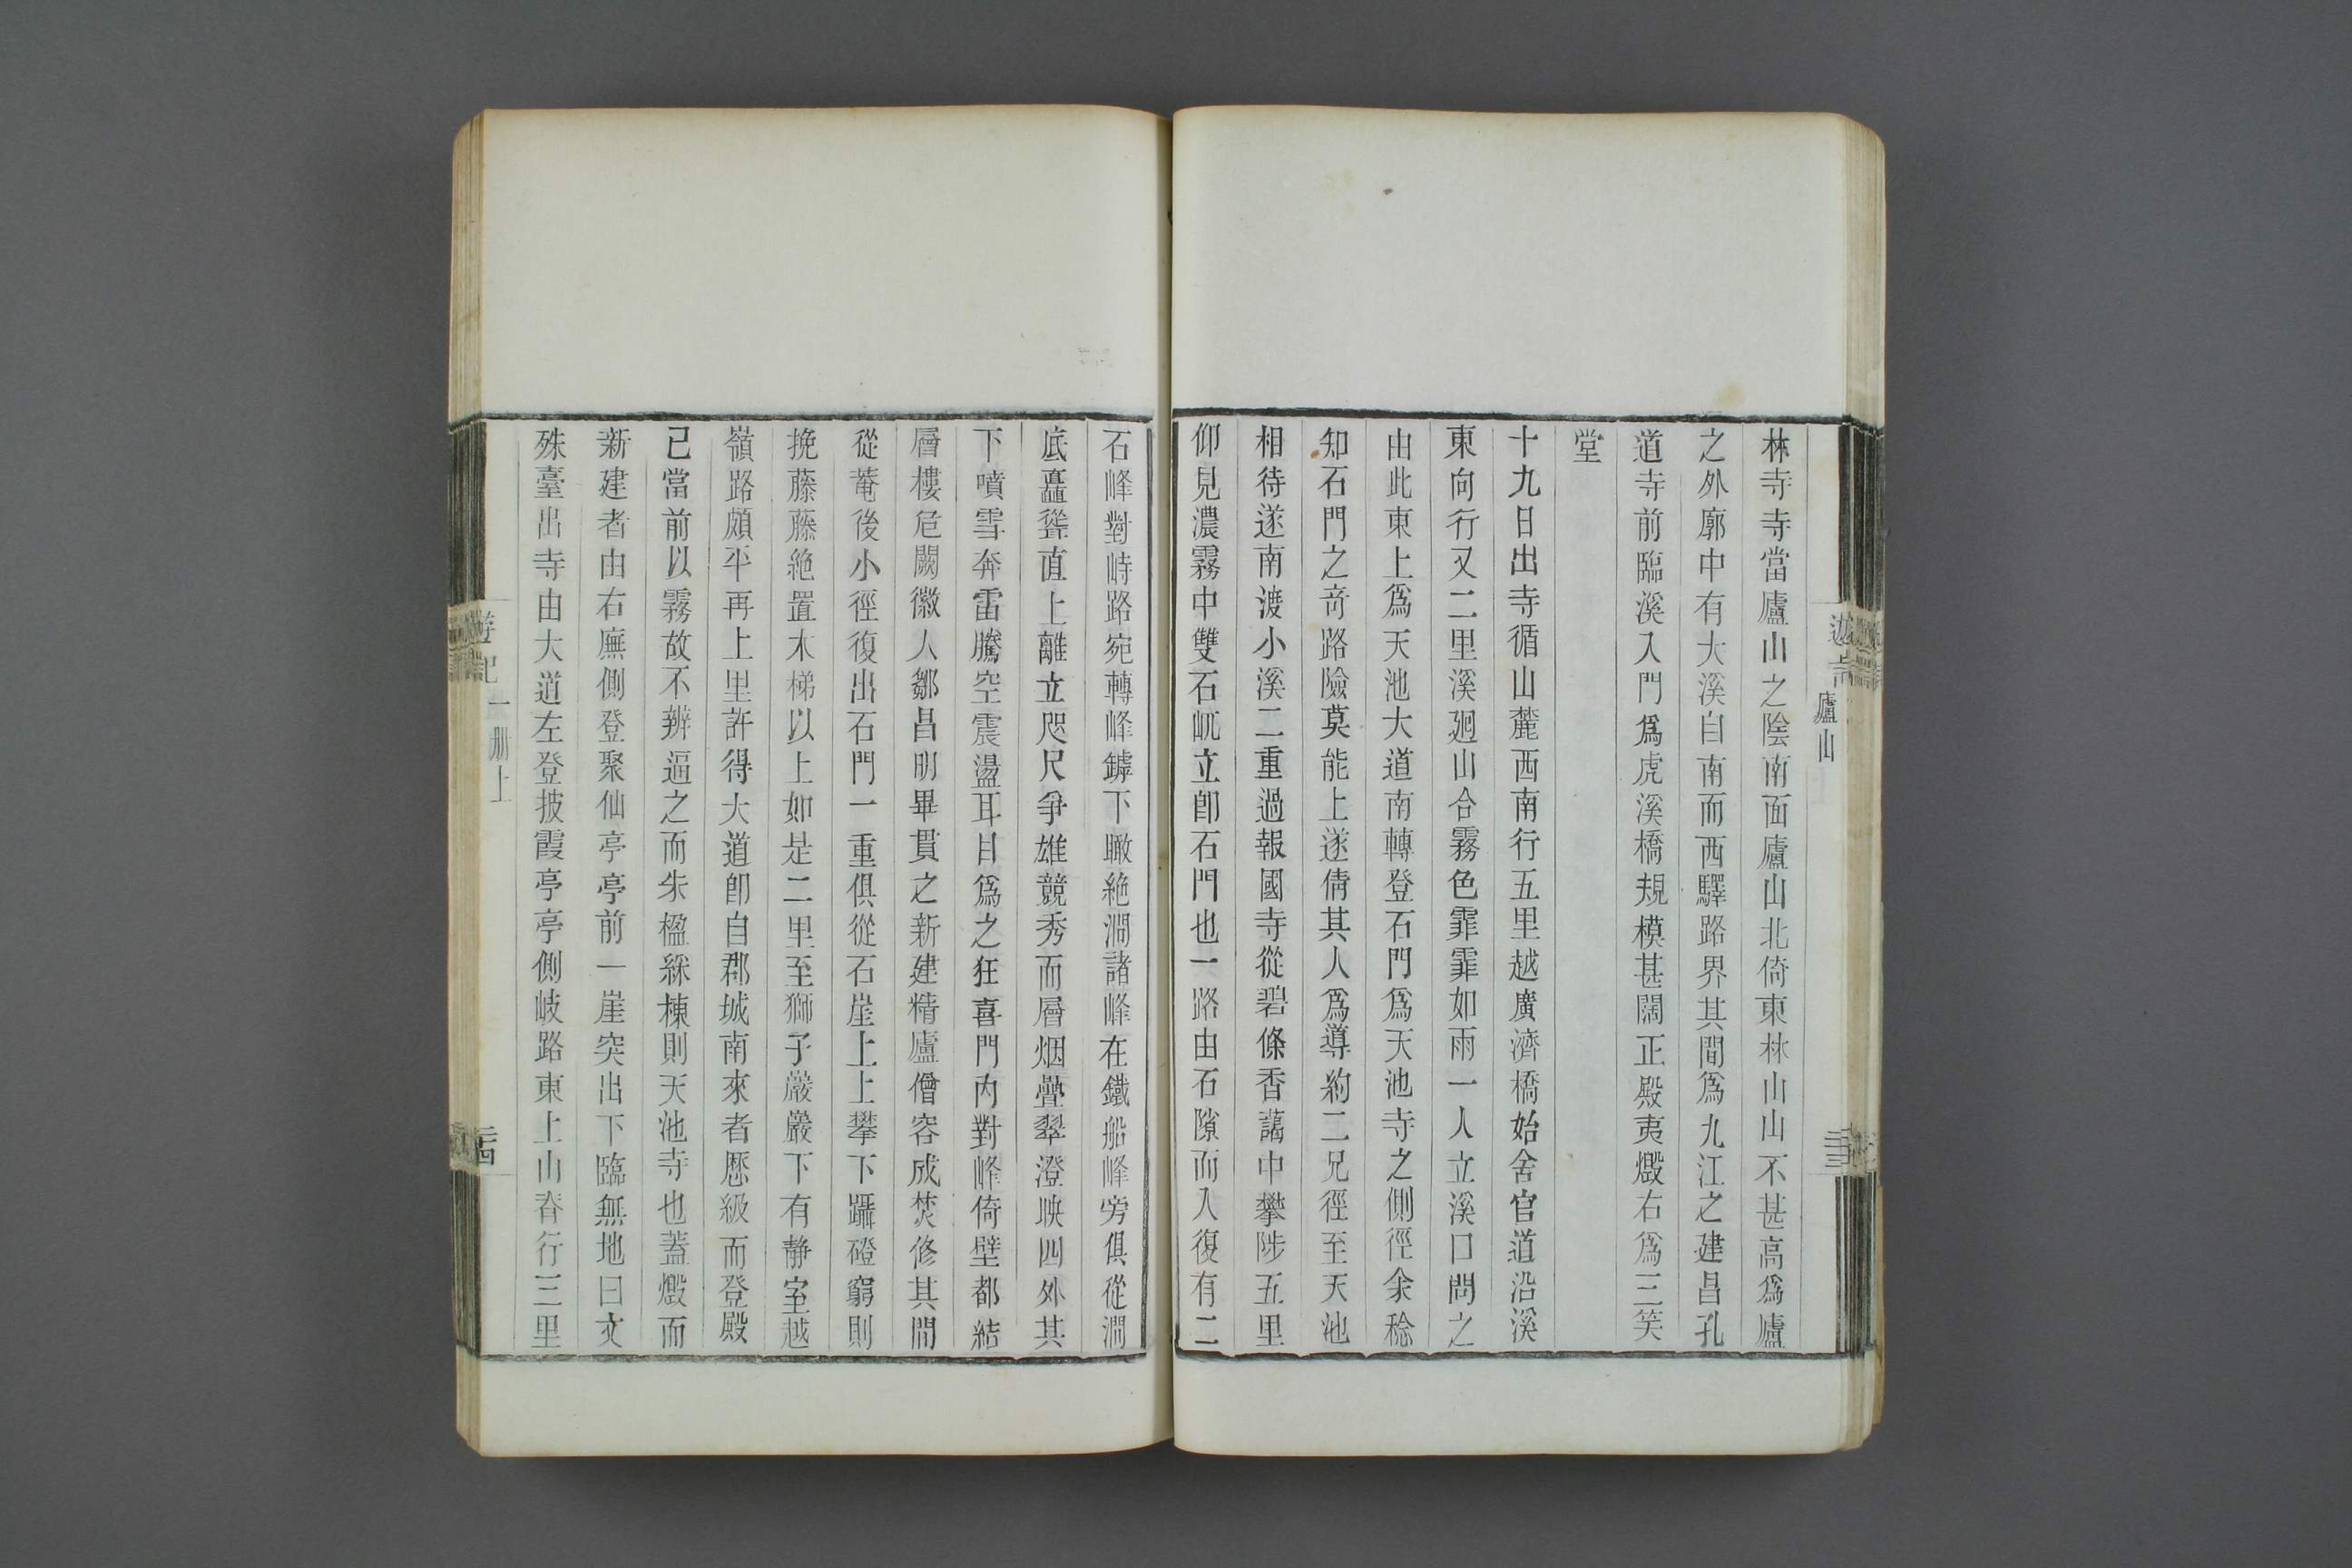 廬山
林寺寺當廬山之陰南面廬山北倚東林山山不甚高爲廬
之外廓中有大溪自南而西驛路界其間爲九江之建昌孔
道寺前臨溪入門爲虎溪橋規模甚闊正殿夷燬右爲三笑
堂
十九日出寺循山麓西南行五里越廣濟橋始舍官道沿溪
東向行又二里溪廻山合霧色霏霏如雨一人立溪口問之
由此東上爲天池大道南轉登石門爲天池寺之側徑余稔
知石門之奇路險莫能上遂倩其人爲導約二兄徑至天池
相待遂南渡小溪二重過報國寺從碧條香藹中攀陟五里
仰見濃霧中雙石屼立卽石門也一路由石隙而入復有二
石峰對峙路宛轉峰罅下瞰絶澗諸峰在鐵船峰旁俱從澗
底矗聳直上離立咫尺爭雄競秀而層烟疊翠澄映四外其
下噴雪奔雷騰空震盪耳目爲之狂喜門内對峰倚壁都結
層樓危闕徽人鄒昌明畢貫之新建精廬僧容成焚修其間
從菴後小徑復出石門一重俱從石崖上上攀下躡磴窮則
挽藤藤絶置木梯以上如是二里至獅子巖巖下有靜室越
嶺路頗平再上里許得大道卽自郡城南來者歷級而登殿
已當前以霧故不辨逼之而朱楹綵棟則天池寺也蓋燬而
新建者由右廡側登聚仙亭亭前一崖突出下臨無地曰文
殊臺出寺由大道左登披霞亭亭側岐路東上山脊行三里
遊記
一册上